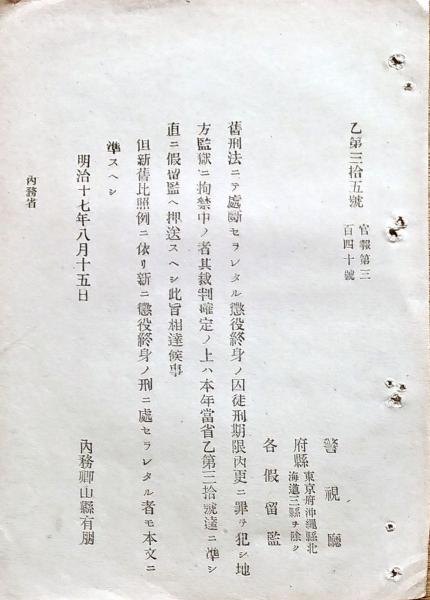 乙第三拾五號
官報第三
百四十號
警視廳
府縣
東京府沖繩縣北
海道三縣ヲ除ク
各假留監
舊刑法ニテ處斷セラレタル懲役終身ノ囚徒刑期限內更ニ罪ヲ犯シ地
方監獄ニ拘禁中ノ者其裁判確定ノ上ハ本年當省乙第三拾號達ニ準シ
直ニ假留監ヘ押送スヘシ此旨相達候事
但新舊比照例ニ依リ新ニ懲役終身ノ刑ニ處セラレタル者モ本文ニ
準スヘシ
明治十七年八月十五日
內務卿山縣有朋
內務省